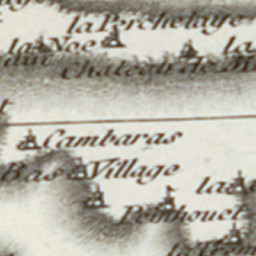 la Perchelaye
la Noe
la
Chateau de
Cambaras
Bas Village
la
Penhouet